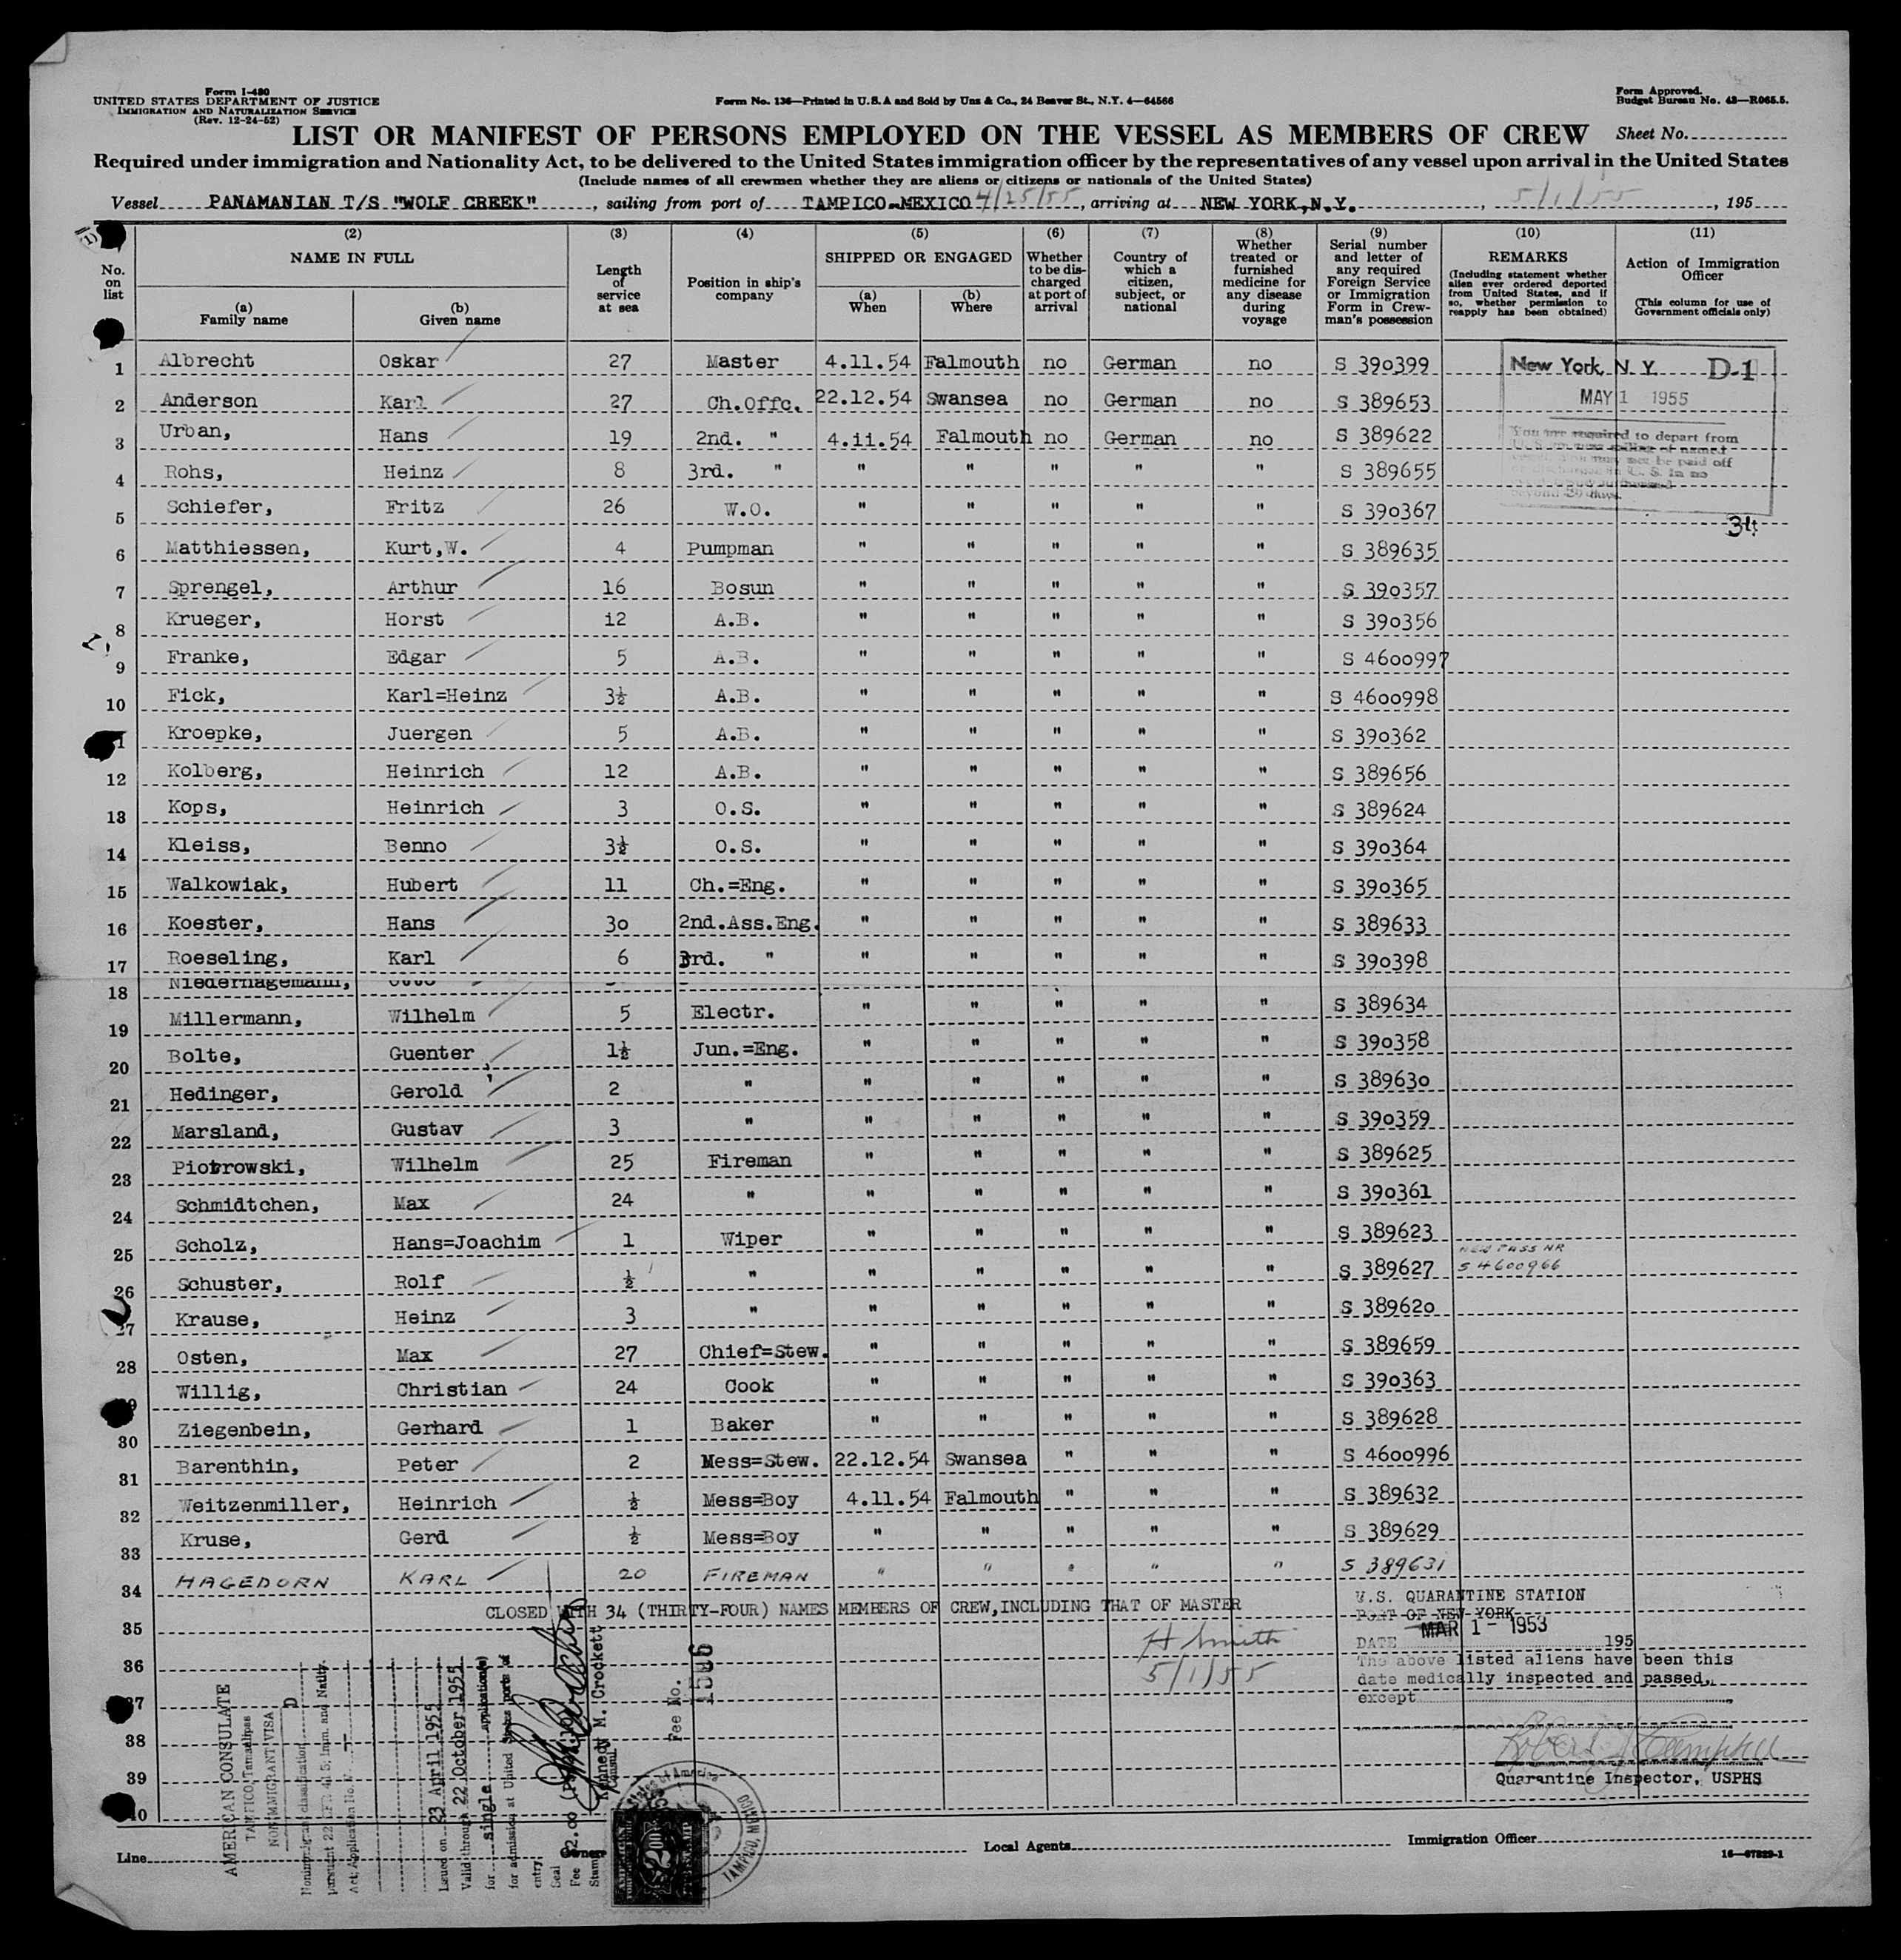 Form I-480
UNITED STATES DEPARTMENT OF JUSTICE
IMMIGRATION AND NATURALIZATION SERVICE
(Rev. 12-24-52)
Form No. 136—Printed in U.S.A and Sold by Unz & Co., 24 Beaver St., N.Y. 4—64566
Form Approved.
Budget Bureau No. 43—R065.5.
LIST OR MANIFEST OF PERSONS EMPLOYED ON THE VESSEL AS MEMBERS OF CREW
Sheet No.
Required under immigration and Nationality Act, to be delivered to the United States immigration officer by the representatives of any vessel upon arrival in the United States
(Include names of all crewmen whether they are aliens or citizens or nationals of the United States)
Vessel PANAMANIAN T/S "WOLF CREEK", sailing from port of TAMPICO-MEXICO 4/25/55, arriving at NEW YORK,N.Y., 5/1/55, 195
(1) No. on list
(2) NAME IN FULL
(a) Family name
(b) Given name
(3) Length of service at sea
(4) Position in ship's company
(5) SHIPPED OR ENGAGED
(a) When
(b) Where
(6) Whether to be discharged at port of arrival
(7) Country of which a citizen, subject, or national
(8) Whether treated or furnished medicine for any disease during voyage
(9) Serial number and letter of any required Foreign Service or Immigration Form in Crewman's possession
(10) REMARKS (Including statement whether alien ever ordered deported from United States, and if so, whether permission to reapply has been obtained)
(11) Action of Immigration Officer (This column for use of Government officials only)
1 Albrecht Oskar 27 Master 4.11.54 Falmouth no German no S 390399
2 Anderson Karl 27 Ch.Offc. 22.12.54 Swansea no German no S 389653
3 Urban, Hans 19 2nd. " 4.11.54 Falmouth no German no S 389622
4 Rohs, Heinz 8 3rd. " " " " " " S 389655
5 Schiefer, Fritz 26 W.O. " " " " " S 390367
6 Matthiessen, Kurt,W. 4 Pumpman " " " " " S 389635
7 Sprengel, Arthur 16 Bosun " " " " " S 390357
8 Krueger, Horst 12 A.B. " " " " " S 390356
9 Franke, Edgar 5 A.B. " " " " " S 4600997
10 Fick, Karl=Heinz 3½ A.B. " " " " " S 4600998
11 Kroepke, Juergen 5 A.B. " " " " " S 390362
12 Kolberg, Heinrich 12 A.B. " " " " " S 389656
13 Kops, Heinrich 3 O.S. " " " " " S 389624
14 Kleiss, Benno 3½ O.S. " " " " " S 390364
15 Walkowiak, Hubert 11 Ch.=Eng. " " " " " S 390365
16 Koester, Hans 30 2nd.Ass.Eng. " " " " " S 389633
17 Roeseling, Karl 6 3rd. " " " " " " S 390398
18 Niedernagemann, Otto
19 Millermann, Wilhelm 5 Electr. " " " " " S 389634
20 Bolte, Guenter 1½ Jun.=Eng. " " " " " S 390358
21 Hedinger, Gerold 2 " " " " " " S 389630
22 Marsland, Gustav 3 " " " " " " S 390359
23 Piotrowski, Wilhelm 25 Fireman " " " " " S 389625
24 Schmidtchen, Max 24 " " " " " " S 390361
25 Scholz, Hans=Joachim 1 Wiper " " " " " S 389623
26 Schuster, Rolf ½ " " " " " " S 389627 NEW PASS NR S 4600966
27 Krause, Heinz 3 " " " " " " S 389620
28 Osten, Max 27 Chief=Stew. " " " " " S 389659
29 Willig, Christian 24 Cook " " " " " S 390363
30 Ziegenbein, Gerhard 1 Baker " " " " " S 389628
31 Barenthin, Peter 2 Mess=Stew. 22.12.54 Swansea " " " S 4600996
32 Weitzenmiller, Heinrich ½ Mess=Boy 4.11.54 Falmouth " " " S 389632
33 Kruse, Gerd ½ Mess=Boy " " " " " S 389629
34 HAGEDORN KARL 20 FIREMAN " " " " " S 389631
CLOSED WITH 34 (THIRTY-FOUR) NAMES MEMBERS OF CREW,INCLUDING THAT OF MASTER
35
36
37
38
39
40
New York, N. Y. D-1
MAY 1 1955
You are required to depart from
34
H Smith
5/1/55
U.S. QUARANTINE STATION
PORT OF NEW YORK
DATE MAR 1 - 1953 195
The above listed aliens have been this
date medically inspected and passed,
except
Quarantine Inspector, USPHS
AMERICAN CONSULATE
TAMPICO, Tamaulipas
NONIMMIGRANT VISA
Nonimmigrant classification D
pursuant 22 CFR 41.5; Imm. and Natlty.
Act; Application No. V.
Issued on 23 April 1955
Valid through 22 October 1955
for single application(s)
for admission at United States ports of
entry.
Seal
Fee $2.00
Stamp
Kennedy M. Crockett
Consul
Fee No. 1506
TAMPICO, MEXICO
Line
Owners
Local Agents
Immigration Officer
16—67829-1